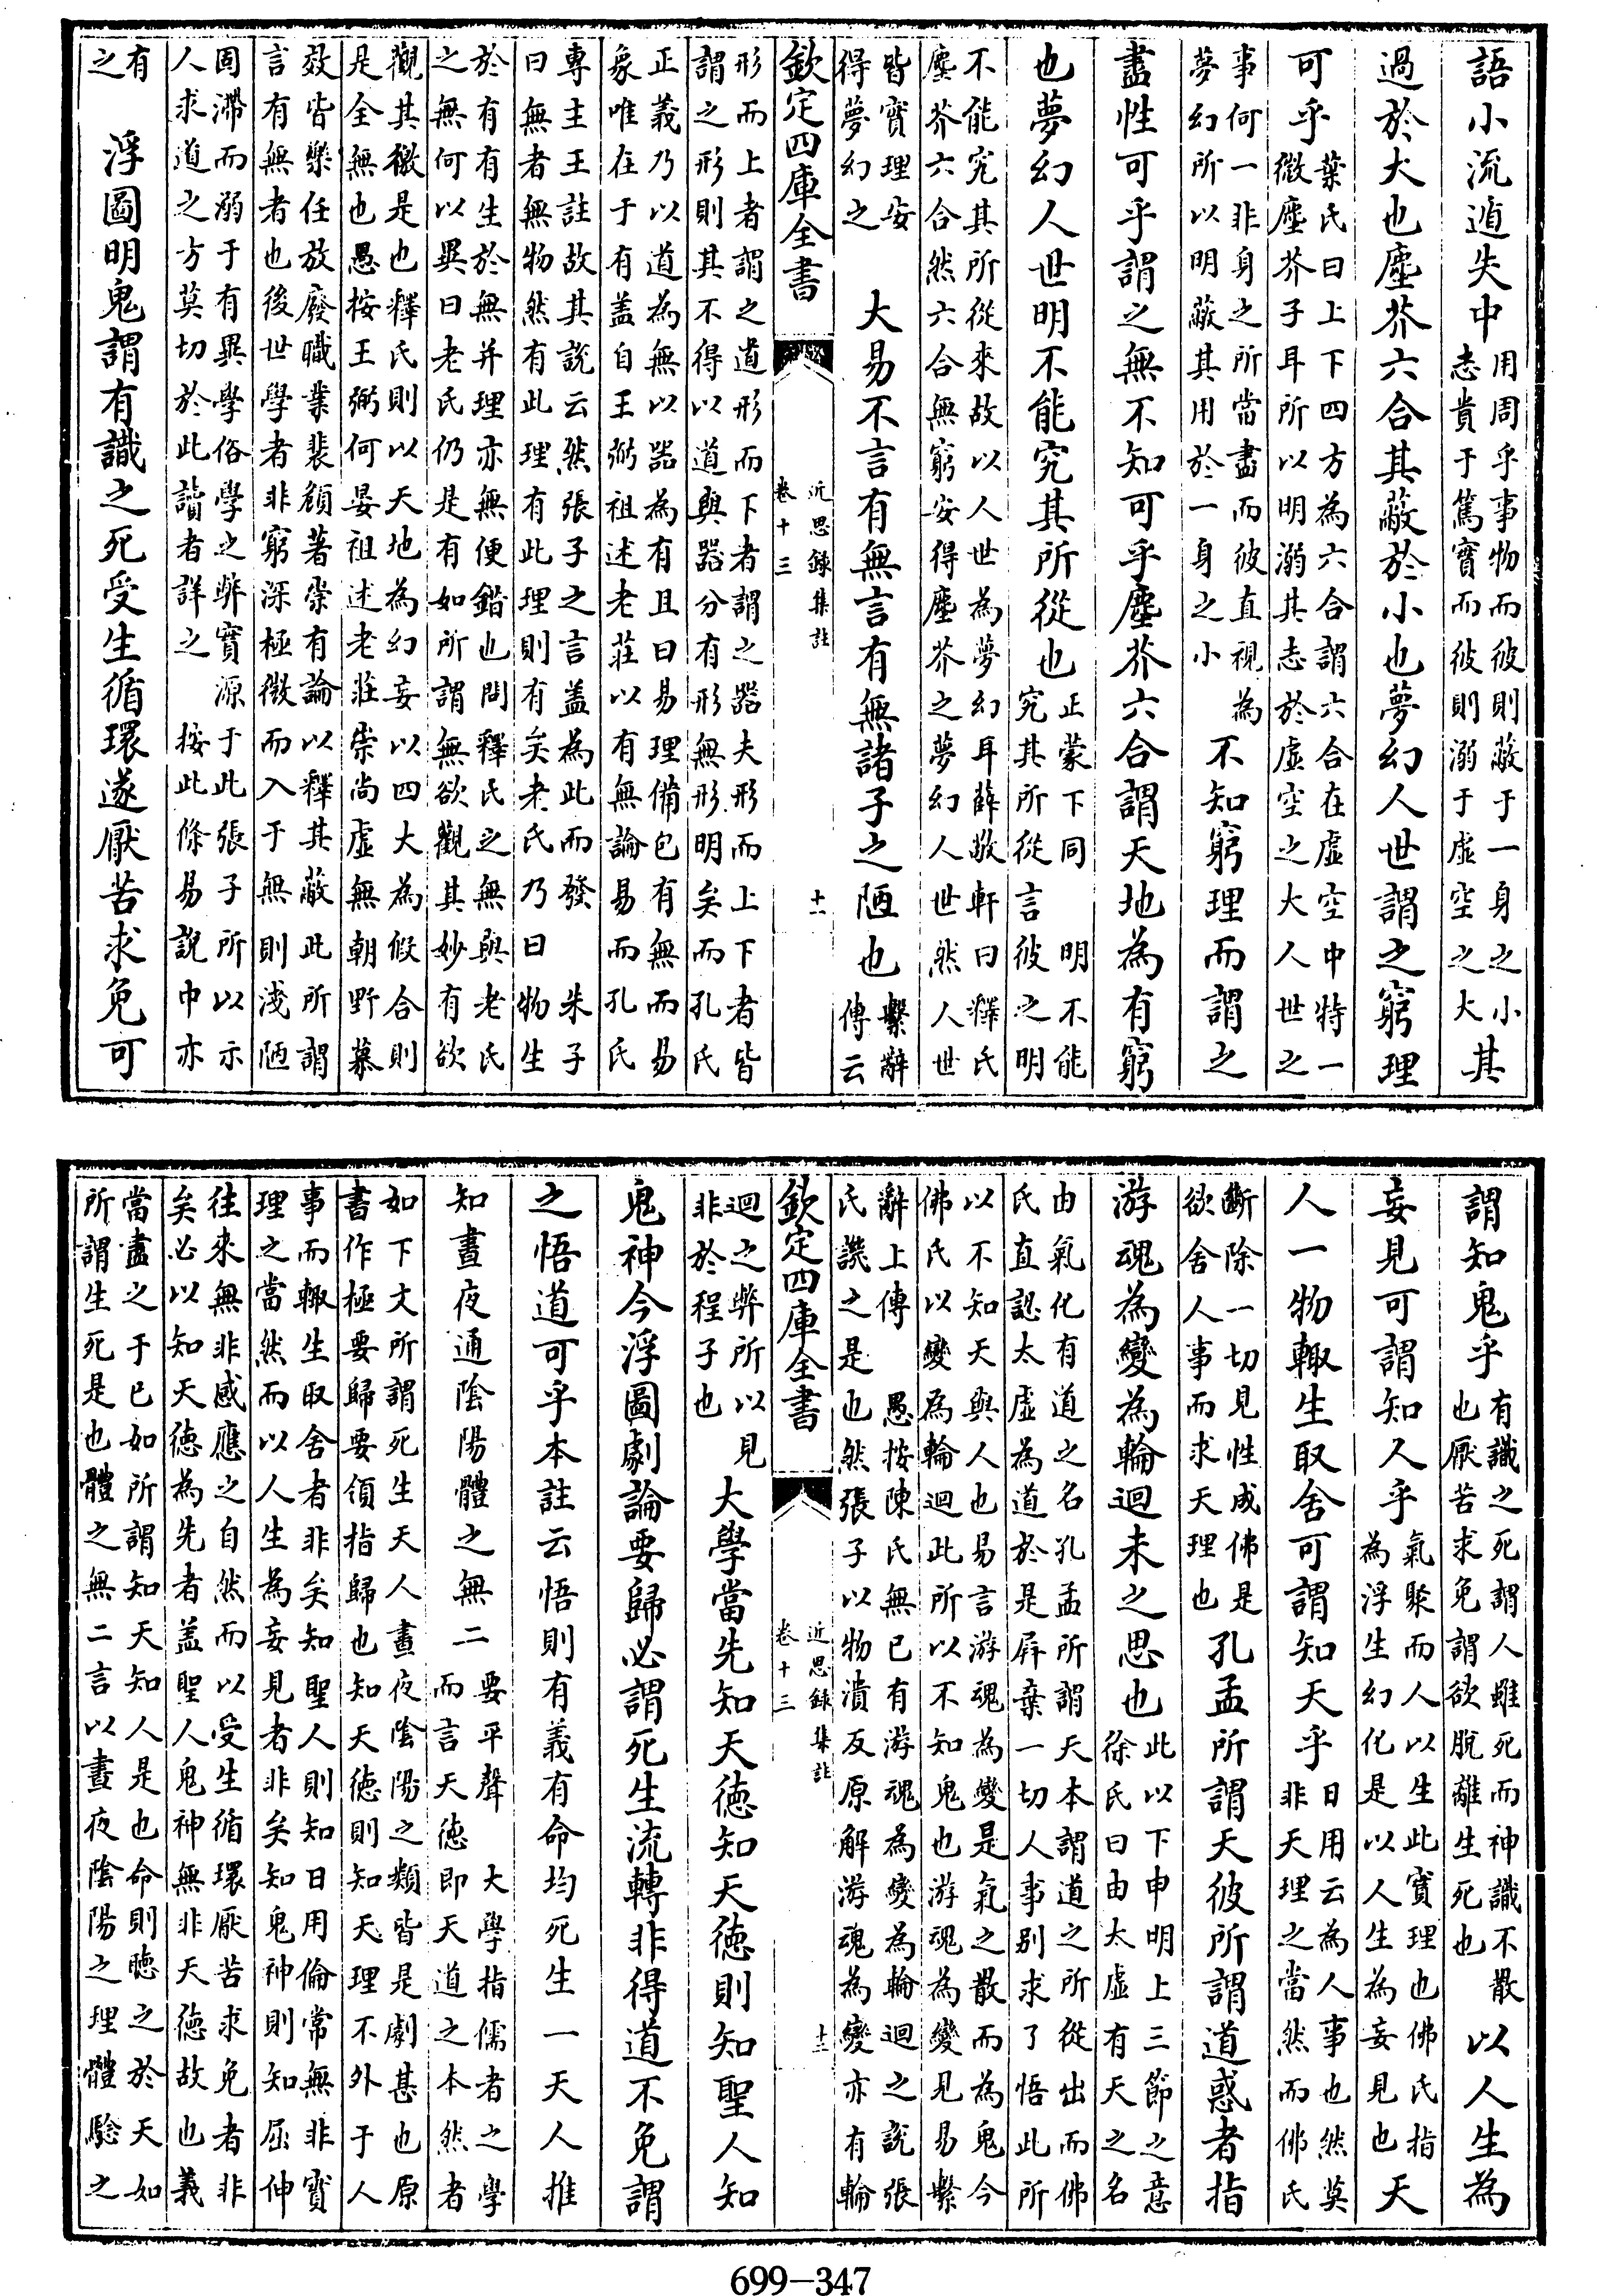 語小流遁失中用周乎事物而彼則蔽于一身之小志貴于篤實而彼則溺于虛空之大其
過於大也塵芥六合其蔽於小也夢幻人世謂之窮理
可乎葉氏曰上下四方為六合謂六合在虛空中特一微塵芥子耳所以明溺其志於虛空之大人世之
事何一非身之所當盡而彼直視為夢幻所以明蔽其用於一身之小不知窮理而謂之
盡性可乎謂之無不知可乎塵芥六合謂天地為有窮
也夢幻人世明不能究其所從也正蒙下同 明不能究其所從言彼之明
不能究其所從來故以人世為夢幻耳薛敬軒曰釋氏塵芥六合然六合無窮安得塵芥之夢幻人世然人世
皆實理安得夢幻之 大易不言有無言有無諸子之陋也繫辭傳云
欽定四庫全書 近思録集註 卷十三 十一
形而上者謂之道形而下者謂之器夫形而上下者皆謂之形則其不得以道與器分有形無形明矣而孔氏
正義乃以道為無以器為有且曰易理備包有無而易象唯在于有蓋自王弼祖述老莊以有無論易而孔氏
專主王註故其說云然張子之言蓋為此而發 朱子曰無者無物然有此理有此理則有矣老氏乃曰 物生
於有有生於無并理亦無便錯也問釋氏之無與老氏之無何以異曰老氏仍是有如所謂無欲觀其妙有欲
觀其徼是也釋氏則以天地為幻妄以四大為假合則是全無也愚按王弼何晏祖述老莊崇尚虛無朝野慕
效皆樂任放廢職業裴頠著崇有論以釋其蔽此所謂言有無者也後世學者非窮深極微而入于無則淺陋
固滯而溺于有異學俗學之弊實源于此張子所以示人求道之方莫切於此讀者詳之 按此條易說中亦
有之 浮圖明鬼謂有識之死受生循環遂厭苦求免可
謂知鬼乎有識之死謂人雖死而神識不散也厭苦求免謂欲脫離生死也以人生為
妄見可謂知人乎氣聚而人以生此實理也佛氏指為浮生幻化是以人生為妄見也天
人一物輒生取舍可謂知天乎日用云為人事也然莫非天理之當然而佛氏
斷除一切見性成佛是欲舍人事而求天理也孔孟所謂天彼所謂道惑者指
游魂為變為輪迴未之思也此以下申明上三節之意徐氏曰由太虛有天之名
由氣化有道之名孔孟所謂天本謂道之所從出而佛氏直認太虛為道於是屏棄一切人事别求了悟此所
以不知天與人也易言游魂為變是氣之散而為鬼今佛氏以變為輪迴此所以不知鬼也游魂為變見易繫
辭上傳 愚按陳氏無已有游魂為變為輪迴之說張氏譏之是也然張子以物潰反原解游魂為變亦有輪
欽定四庫全書 近思録集註 卷十三 十二
迴之弊所以見非於程子也 大學當先知天徳知天徳則知聖人知
鬼神今浮圖劇論要歸必謂死生流轉非得道不免謂
之悟道可乎本註云悟則有義有命均死生一天人推
知晝夜通陰陽體之無二要平聲 大學指儒者之學而言天徳即天道之本然者
如下文所謂死生天人晝夜陰陽之類皆是劇甚也原書作極要要歸要領指歸也知天徳則知天理不外于人
事而輒生取舍者非矣知聖人則知日用倫常無非實理之當然而以人生為妄見者非矣知鬼神則知屈伸
往來無非感應之自然而以受生循環厭苦求免者非矣必以知天徳為先者蓋聖人鬼神無非天徳故也義
當盡之于已如所謂知天知人是也命則聽之於天如所謂生死是也體之無二言以晝夜陰陽之理體驗之
699-347